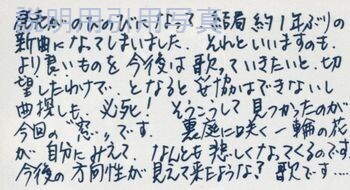 説明用引用写真
のびのびになって 結局 約1年ぶりの
新曲になってしまいました。それといいますのも、
より良いものを今後は歌っていきたいと、切
望したわけで、となると妥協はできないし
曲探しも、必死! そうこうして見つかったのが
今回の"窓"です。 裏庭に咲く一輪の花
が自分にみえて、なんとも悲しくなってくるのです
今後の方向性が見えて来たような?歌です…